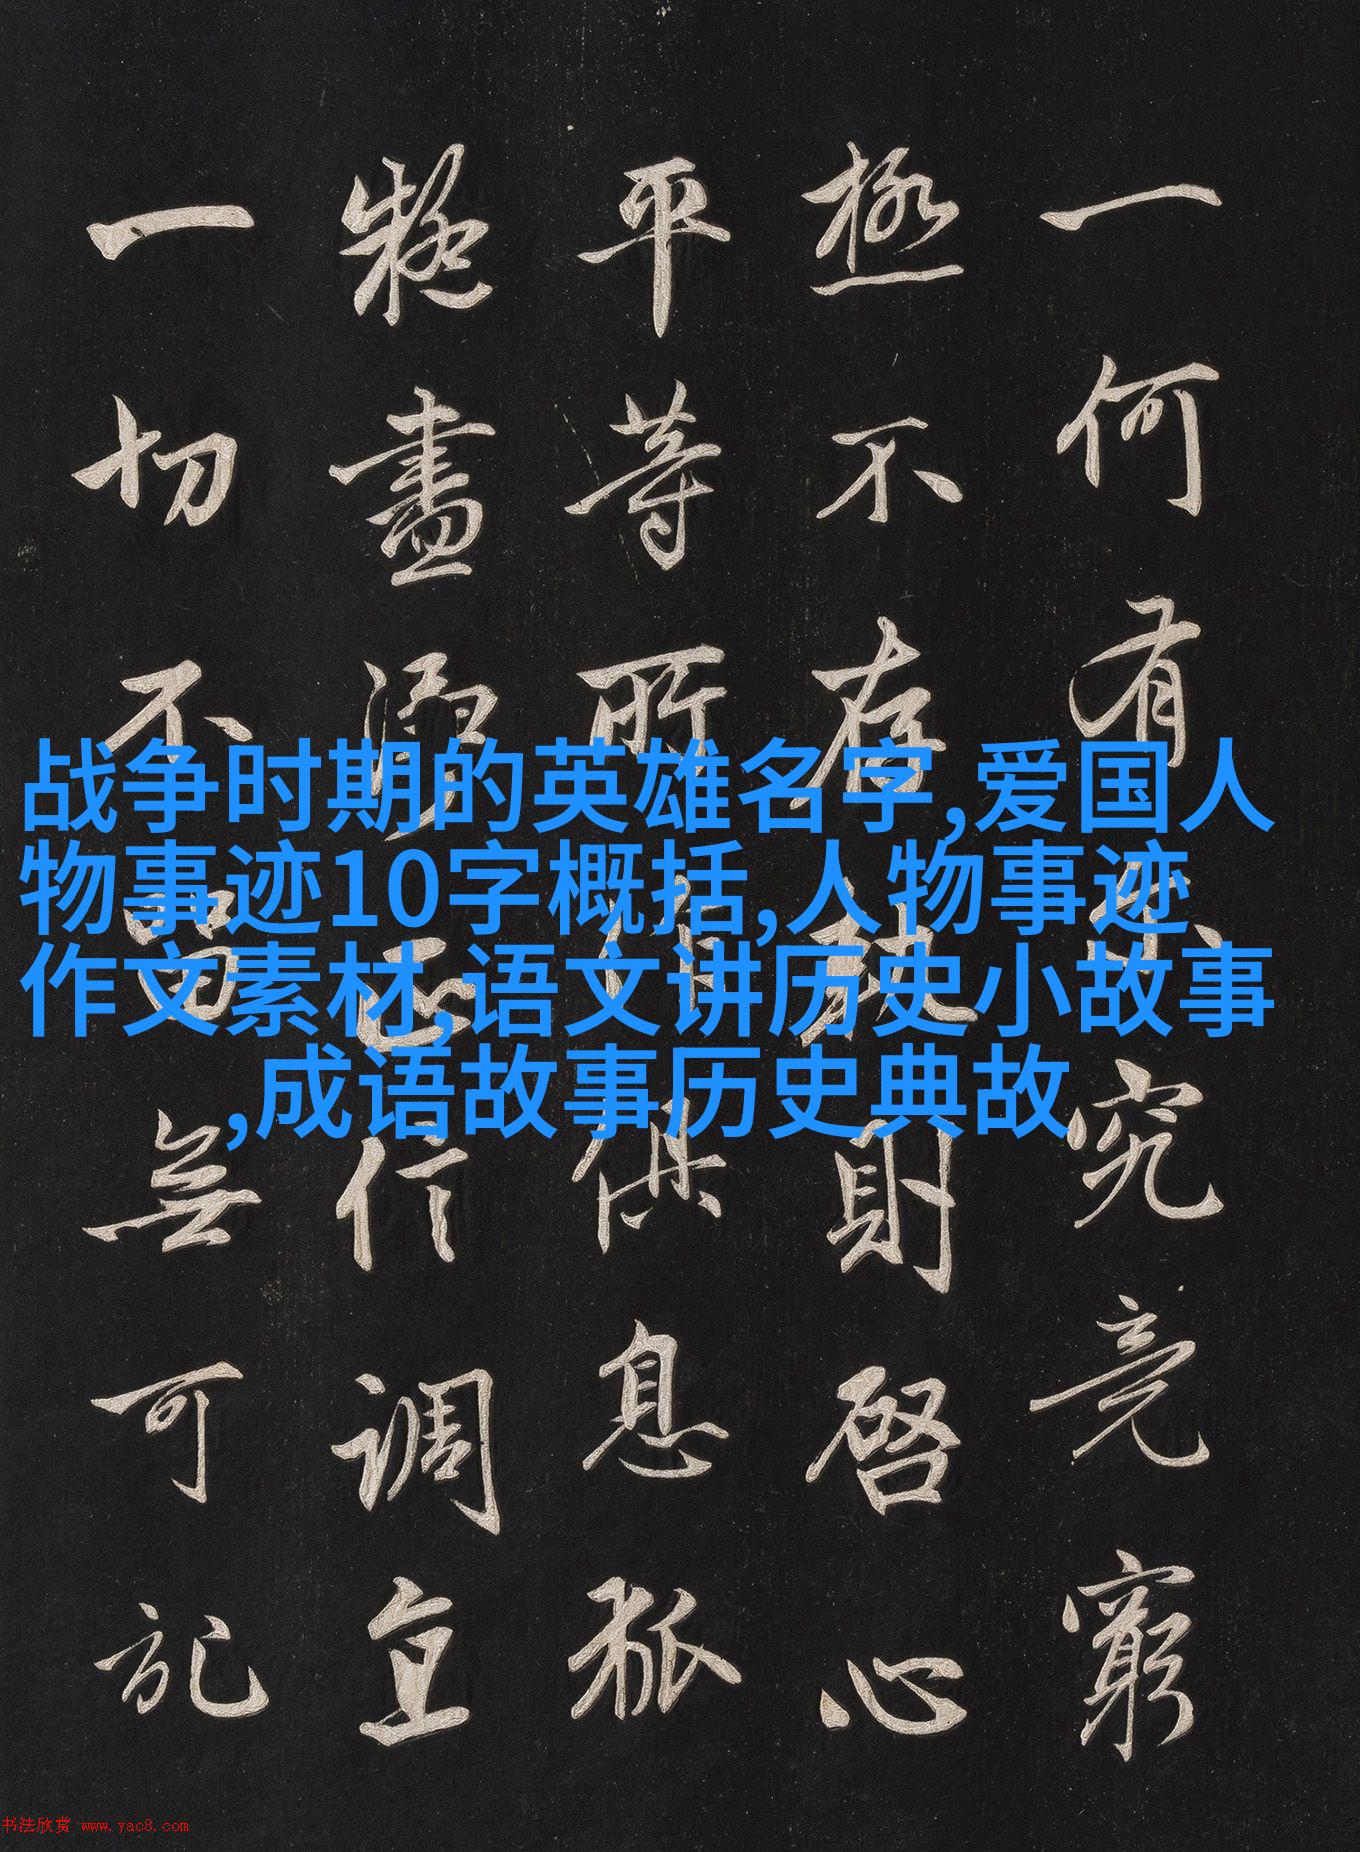 一何有究竟窮
極不存軌則啓心
平等所作俱息狐
疑盡淨正信調直
一切不留無可記
战争时期的英雄名字,爱国人
物事迹10字概括,人物事迹
作文素材,语文讲历史小故事
,成语故事历史典故
书法欣赏 www.yac8.com